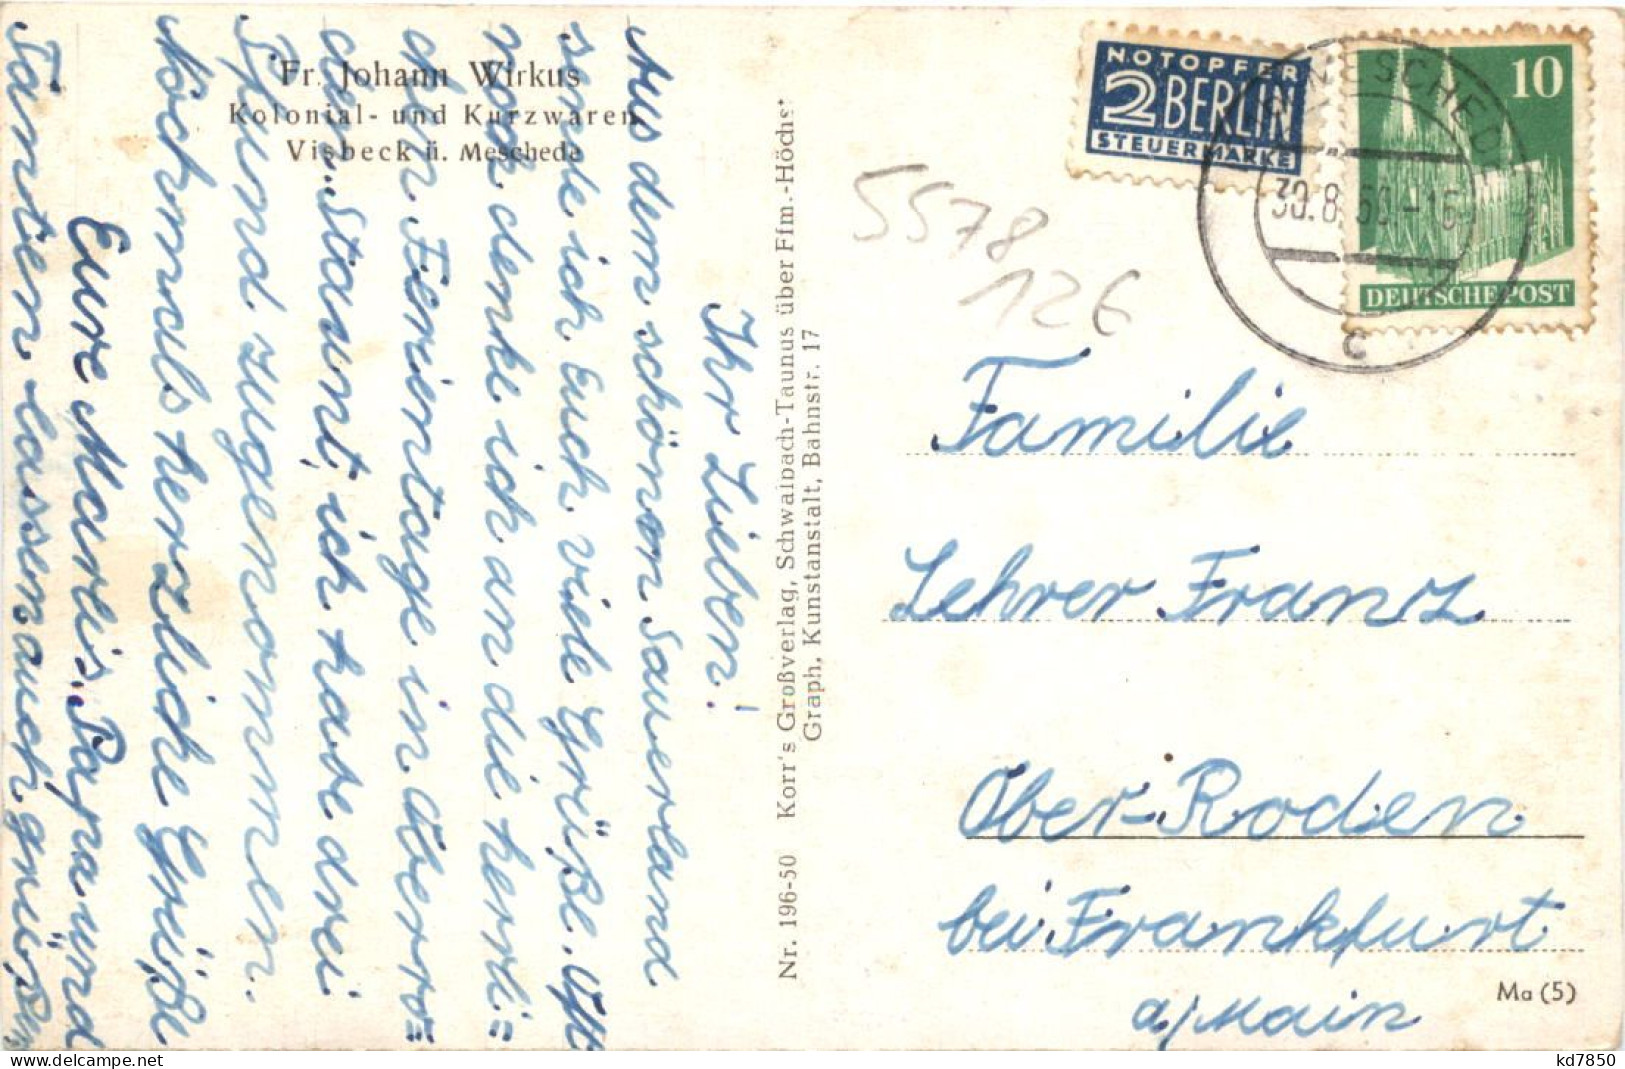 Fr. Johann Wirkus
Kolonial- und Kurzwaren
Visbeck ü. Meschede
Ihr Lieben!
Aus dem schönen Sauerland
sende ich Euch viele Grüße. Oft
noch denke ich an die herrli=
chen Ferientage in Oberro=
den. Staunt, ich habe drei
Pfund zugenommen.
Nochmals herzliche Grüße
Eure Marlis. Papa und
Tanten lassen auch grüßen
Nr. 196-50 Korr's Großverlag, Schwalbach-Taunus über Ffm.-Höchst
Graph. Kunstanstalt, Bahnstr. 17
NOTOPFER
2 BERLIN
STEUERMARKE
10
DEUTSCHE POST
MESCHEDE
30.8.50-16
c
5578
126
Familie
Lehrer Franz
Ober-Roden
bei Frankfurt
a/Main
Ma (5)
www.delcampe.net
kd7850